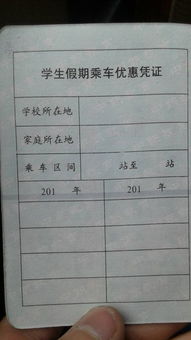 学生假期乘车优惠凭证
学校所在地
家庭所在地
乘车区间 站至 站
201 年 201 年